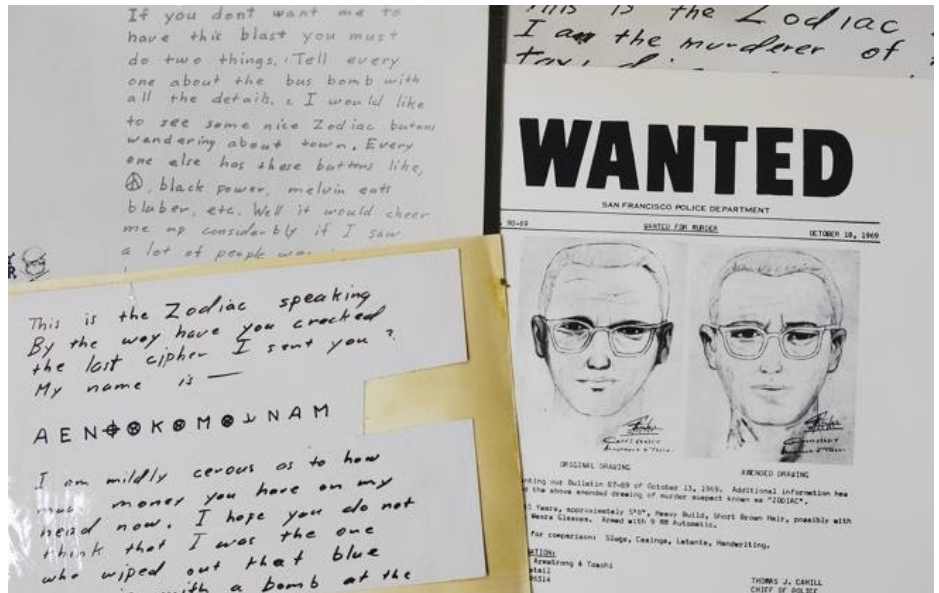 If you dont want me to
have this blast you must
do two things. Tell every
one about the bus bomb with
all the details. I would like
to see some nice Zodiac butons
wandering about town. Every
one else has these buttons like,
☮, black power, melvin eats
bluber, etc. Well it would cheer
me up considerbly if I saw
a lot of people
This is the Zodiac speaking
By the way have you cracked
the last cipher I sent you?
My name is —
A E N ⌖ ⊗ K ⊗ M ⊗ ⅃ N A M
I am mildly cerous as to how
much money you have on my
head now. I hope you do not
think that I was the one
who wiped out that blue
with a bomb at the
This is the Zodiac
I am the murderer of
WANTED
SAN FRANCISCO POLICE DEPARTMENT
90-69 WANTED FOR MURDER OCTOBER 18, 1969
ORIGINAL DRAWING AMENDED DRAWING
nting our Bulletin 87-69 of October 13, 1969. Additional information has
the above amended drawing of murder suspect known as "ZODIAC".
5 Years, approximately 5'8", Heavy Build, Short Brown Hair, possibly with
Wears Glasses. Armed with 9 MM Automatic.
for comparison: Slugs, Casings, Latents, Handwriting.
ATION:
Armstrong & Toschi
etail
96314
THOMAS J. CAHILL
CHIEF OF POLICE